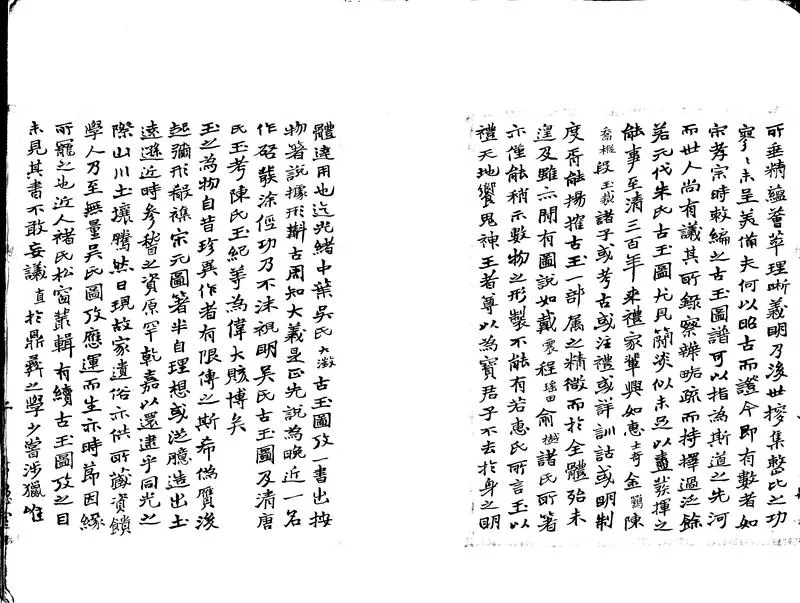 所垂精蘊薈萃理晰義明乃後世搜集整比之功
寥寥未呈美備夫何以昭古而證今即有數者如
宋孝宗時敕編之古玉圖譜可以指為斯道之先河
而世人尚有議其所錄察辨垢疏而持擇過泛餘
若元代朱氏古玉圖尤凡簡淡似未足以盡發揮之
能事至清三百年來禮家輩興如惠士奇金鶚陳
喬樅段玉裁諸子或考古或注禮或詳訓詁或明制
度孱能揚搉古玉一部屬之精微而於全體殆未
遑及雖亦間有圖說如戴震程瑤田俞樾諸氏所箸
亦僅能稍示數物之形製不能有若惠氏所言玉以
禮天地饗鬼神王者尊以為寶君子不去於身之明
體達用也迄光緒中葉吳氏大澂古玉圖攷一書出按
物箸說據形斠古周知大義是正先說為晚近一名
作啓發涂俓功乃不沫視明吳氏古玉圖及清唐
氏玉考陳氏玉紀等為偉大賅博矣
玉之為物自昔珍異作者有限傳之斯希偽贗後
起彌形殽襍宋元圖箸半自理想或泛臆造出土
逺遜近時參稽之資原罕乾嘉以還逮乎同光之
際山川土壤騰煦日現故家遺俗亦供所藏資饋
學人乃至無量吳氏圖攷應運而生亦時節因緣
所罷之也近人褚氏松窗葉輯有續古玉圖攷之目
未見其書不敢妄議直於鼎彝之學少嘗涉獵惟